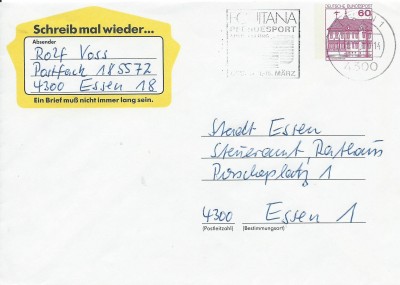 Schreib mal wieder...
Absender
Rolf Voss
Postfach 185572
4300 Essen 18
Ein Brief muß nicht immer lang sein.
EQUITANA
PFERDESPORT
MÄRZ
DEUTSCHE BUNDESPOST
60
1
4300
Stadt Essen
Steueramt, Rathaus
Porscheplatz 1
4300 Essen 1
(Postleitzahl) (Bestimmungsort)